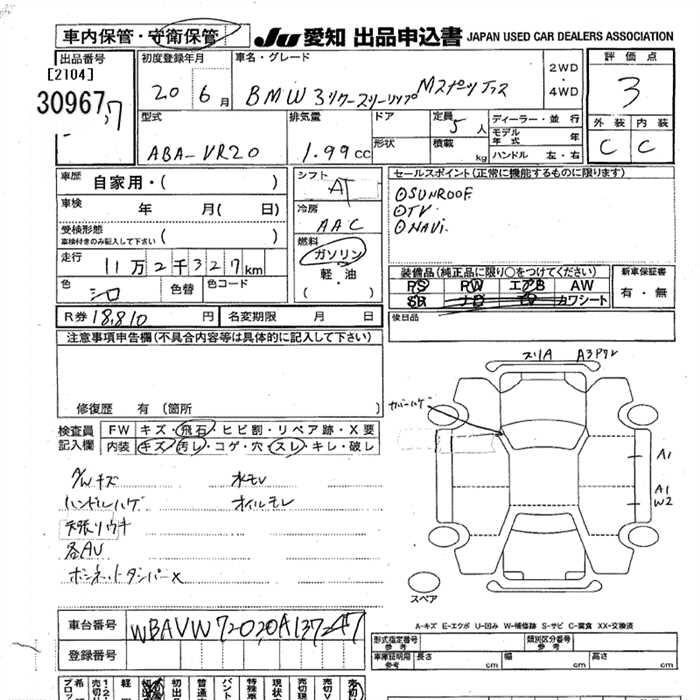 車内保管・守衛保管
JU 愛知 出品申込書 JAPAN USED CAR DEALERS ASSOCIATION
出品番号
[2104]
30967
初度登録年月
20年 6月
車名・グレード
BMW 3シリーズツーリング Mスポーツ
2WD
・
4WD
評価点
3
型式
ABA-VR20
排気量
1.99cc
ドア
形状
定員
5人
積載
kg
ディーラー・並行
モデル年式 年
ハンドル 左・右
外装 内装
C C
車歴
自家用・( )
車検
年 月( 日)
受検形態
車検付きのみ記入して下さい ( )
走行
11万2千327km
色
シロ
色替
色コード
R券 18,810円
名変期限 月 日
シフト
AT
冷房
AAC
燃料
ガソリン
・
軽・油
( )
セールスポイント(正常に機能するものに限ります)
○SUNROOF
○TV.
○NAVi.
装備品(純正品に限り○をつけてください)
PS PW エアB AW
SR ナビ TV カワシート
新車保証書
有・無
後日品
注意事項申告欄(不具合内容等は具体的に記入して下さい)
修復歴 有(箇所 )
検査員記入欄
FW キズ・飛石・ヒビ割・リペア跡・X要
内装 キズ・汚レ・コゲ・穴・スレ・キレ・破レ
G/Wキズ 水モレ
ハンドルハゲ オイルモレ
天張リウキ
各AU
ボンネットダンパーX
スリA A3
カバーハゲ
A1
A1
W2
スペア
A-キズ E-エクボ U-凹み W-補修跡 S-サビ C-腐食 XX-交換済
車台番号
WBAVW72020A13747
登録番号
形式指定番号
参考
類別区分番号
参考
車庫証明用
参考
長さ cm
幅 cm
高さ cm